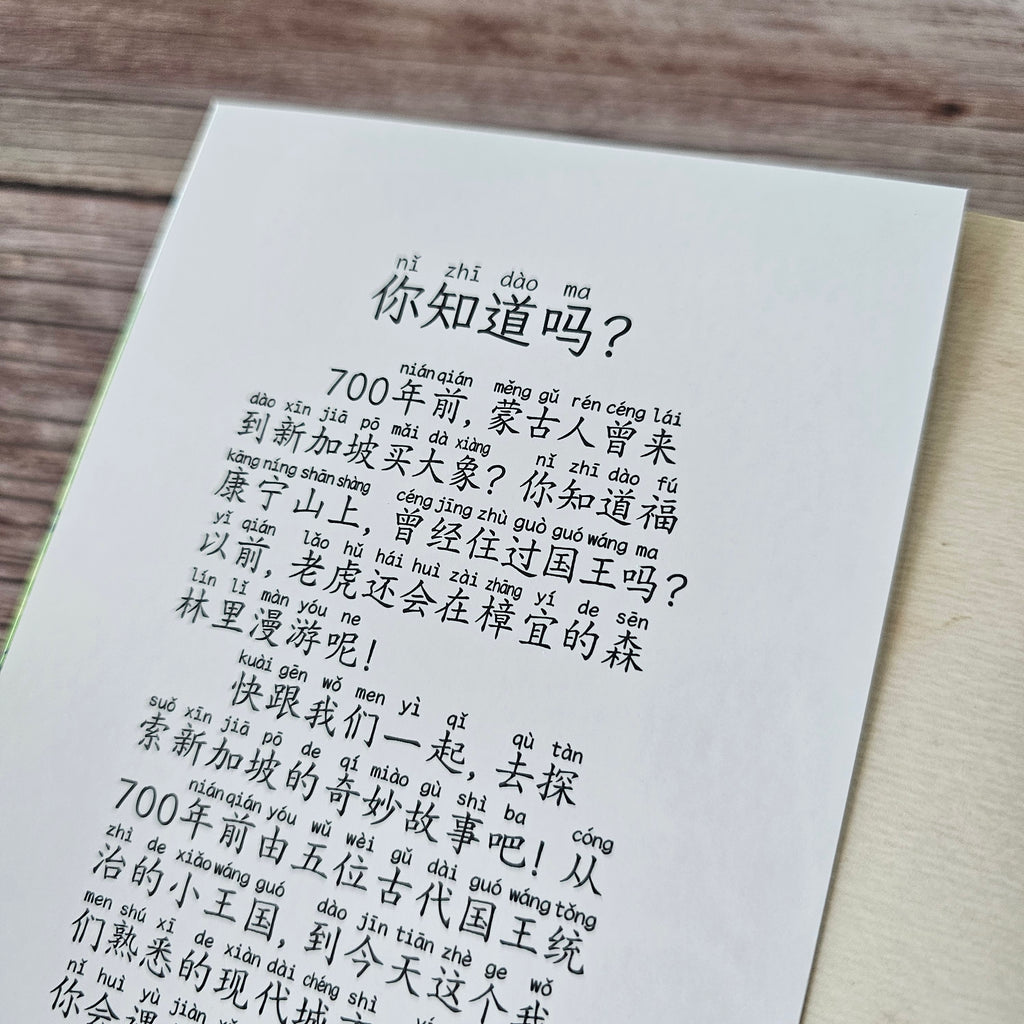 nǐ zhī dào ma
你知道吗？
nián qián měng gǔ rén céng lái
700年前，蒙古人曾来
dào xīn jiā pō mǎi dà xiàng nǐ zhī dào fú
到新加坡买大象？你知道福
kāng níng shān shàng céng jīng zhù guò guó wáng ma
康宁山上，曾经住过国王吗？
yǐ qián lǎo hǔ hái huì zài zhāng yí de sēn
以前，老虎还会在樟宜的森
lín lǐ màn yóu ne
林里漫游呢！
kuài gēn wǒ men yì qǐ qù tàn
快跟我们一起，去探
suǒ xīn jiā pō de qí miào gù shì ba cóng
索新加坡的奇妙故事吧！从
nián qián yóu wǔ wèi gǔ dài guó wáng tǒng
700年前由五位古代国王统
zhì de xiǎo wáng guó dào jīn tiān zhè ge wǒ
治的小王国，到今天这个我
men shú xī de xiàn dài chéng shì
们熟悉的现代城市
nǐ huì yù jiàn
你会遇